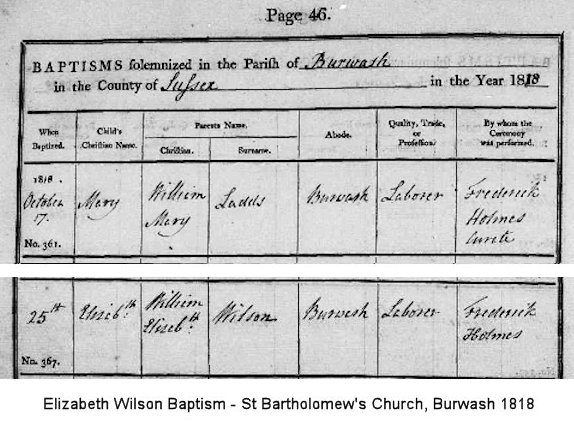 Page 46.
BAPTISMS solemnized in the Parish of Burwash
in the County of Sussex in the Year 1818
When Baptized. Child's Christian Name. Parents Name. Christian. Surname. Abode. Quality, Trade, or Profession. By whom the Ceremony was performed.
1818. October 17. Mary William Mary Ladds Burwash Laborer Frederick Holmes Curate
No. 361.
25th Elizbth. William Elizbth. Wilson Burwash Laborer Frederick Holmes
No. 367.
Elizabeth Wilson Baptism - St Bartholomew's Church, Burwash 1818